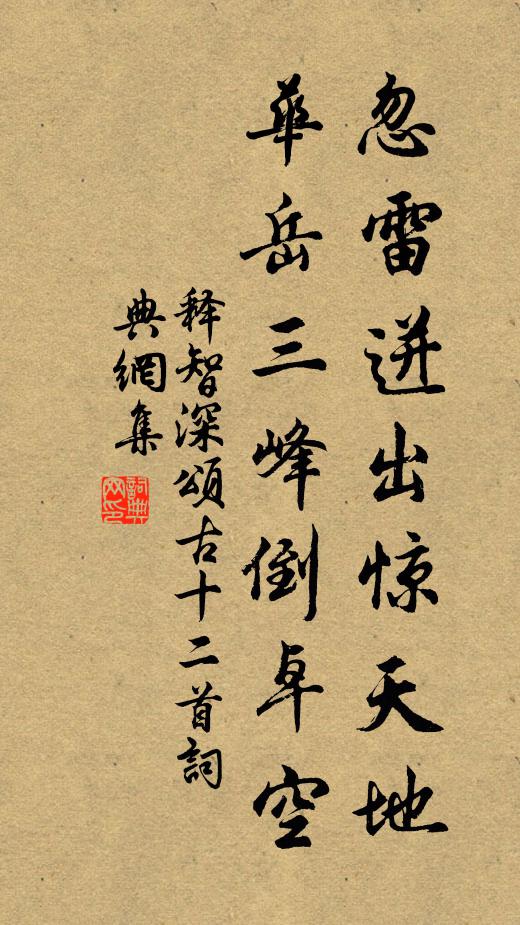 忽雷迸出惊天地
華岳三峰倒卓空
释智深頌古十二首詞
典網集
詞典
网印